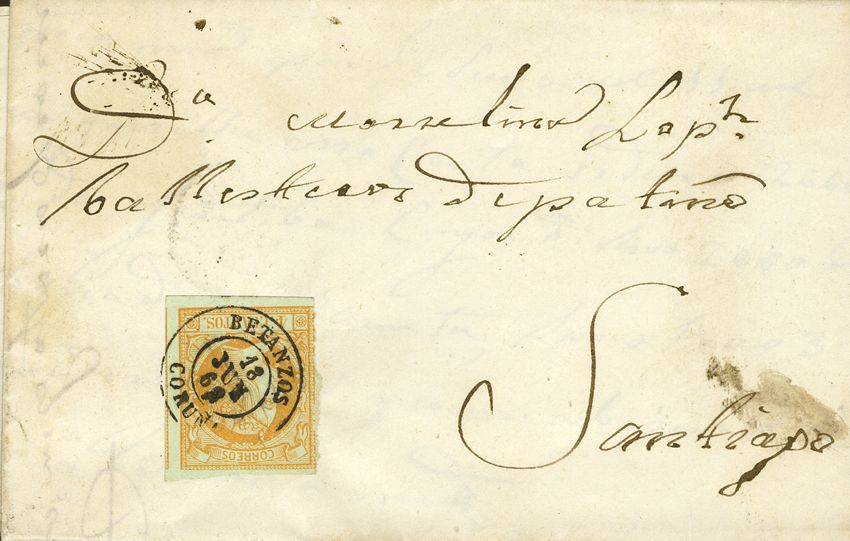 Dª Marselina Lopz
ballesteros de patiño
Santiago
BETANZOS
18
JUN
62
CORUÑ.
CORREOS